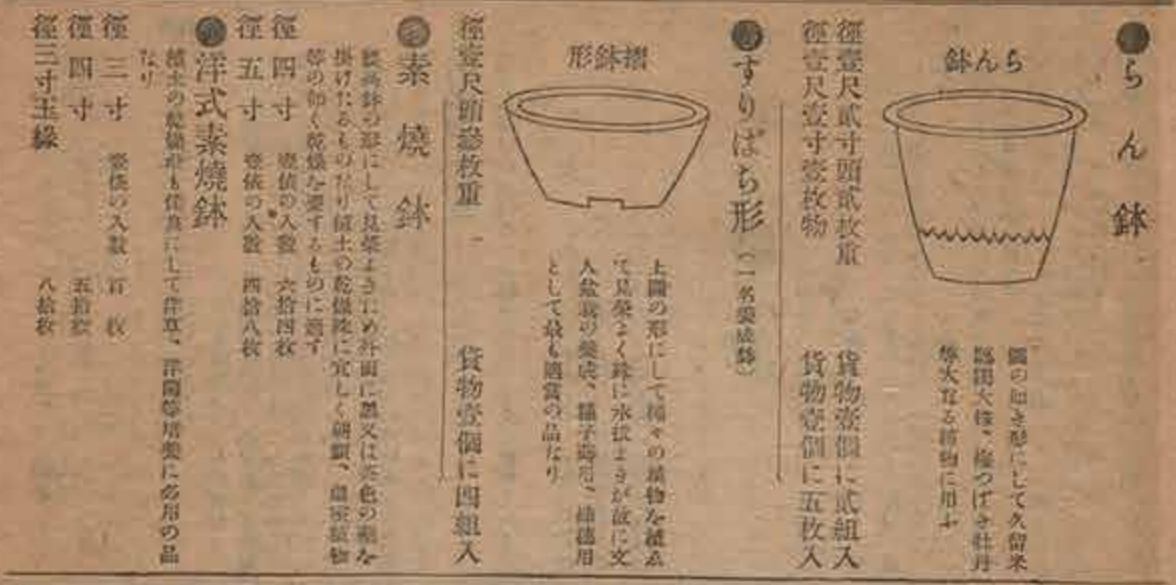 らん鉢
鉢んら
圖の如き形にして久留米
躑躅大株、梅つばき牡丹
等大なる植物に用ふ
徑壹尺貳寸頭貳枚重 貨物壹個に貳組入
徑壹尺壹寸壹枚物 貨物壹個に五枚入
すりばち形(一名養成鉢)
形鉢摺
上圖の形にして種々の植物を植ゑ
て見榮よく鉢に水拔よきが故に文
人盆栽の養成、種子蒔用、挿穗用
として最も適當の品なり
徑壹尺頭參枚重 貨物壹個に四組入
素燒鉢
の形にして見榮よきため外面に黑又は茶色の釉を
掛けたるものなり植土の乾燥殊に宜しく朝顏、溫室植物
等の如く乾燥を要するものに適す
徑四寸 壹俵の入數 六拾四枚
徑五寸 壹俵の入數 四拾八枚
洋式素燒鉢
植土の乾燥最も佳良にして洋草、洋蘭等培養に必用の品
なり
徑三寸 壹俵の入數 百枚
徑四寸 五拾枚
徑三寸玉緣 八拾枚